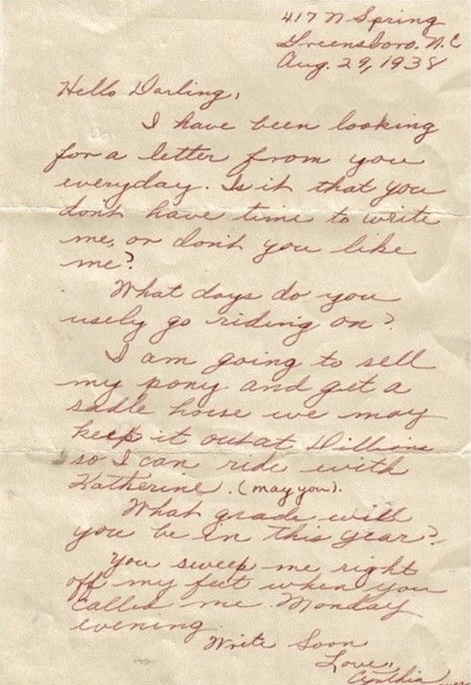 417 N Spring
Greensboro. N.C
Aug. 29, 1938
Hello Darling,
I have been looking
for a letter from you
everyday. Is it that you
dont have time to write
me, or don't you like
me?
What days do you
usely go riding on?
I am going to sell
my pony and get a
sadle horse we may
keep it out at Dillions
so I can ride with
Katherine. (may you).
What grade will
you be in this year?
You sweep me right
off my feet when you
called me Monday
evening.
Write Soon
Love,,
Cynthia